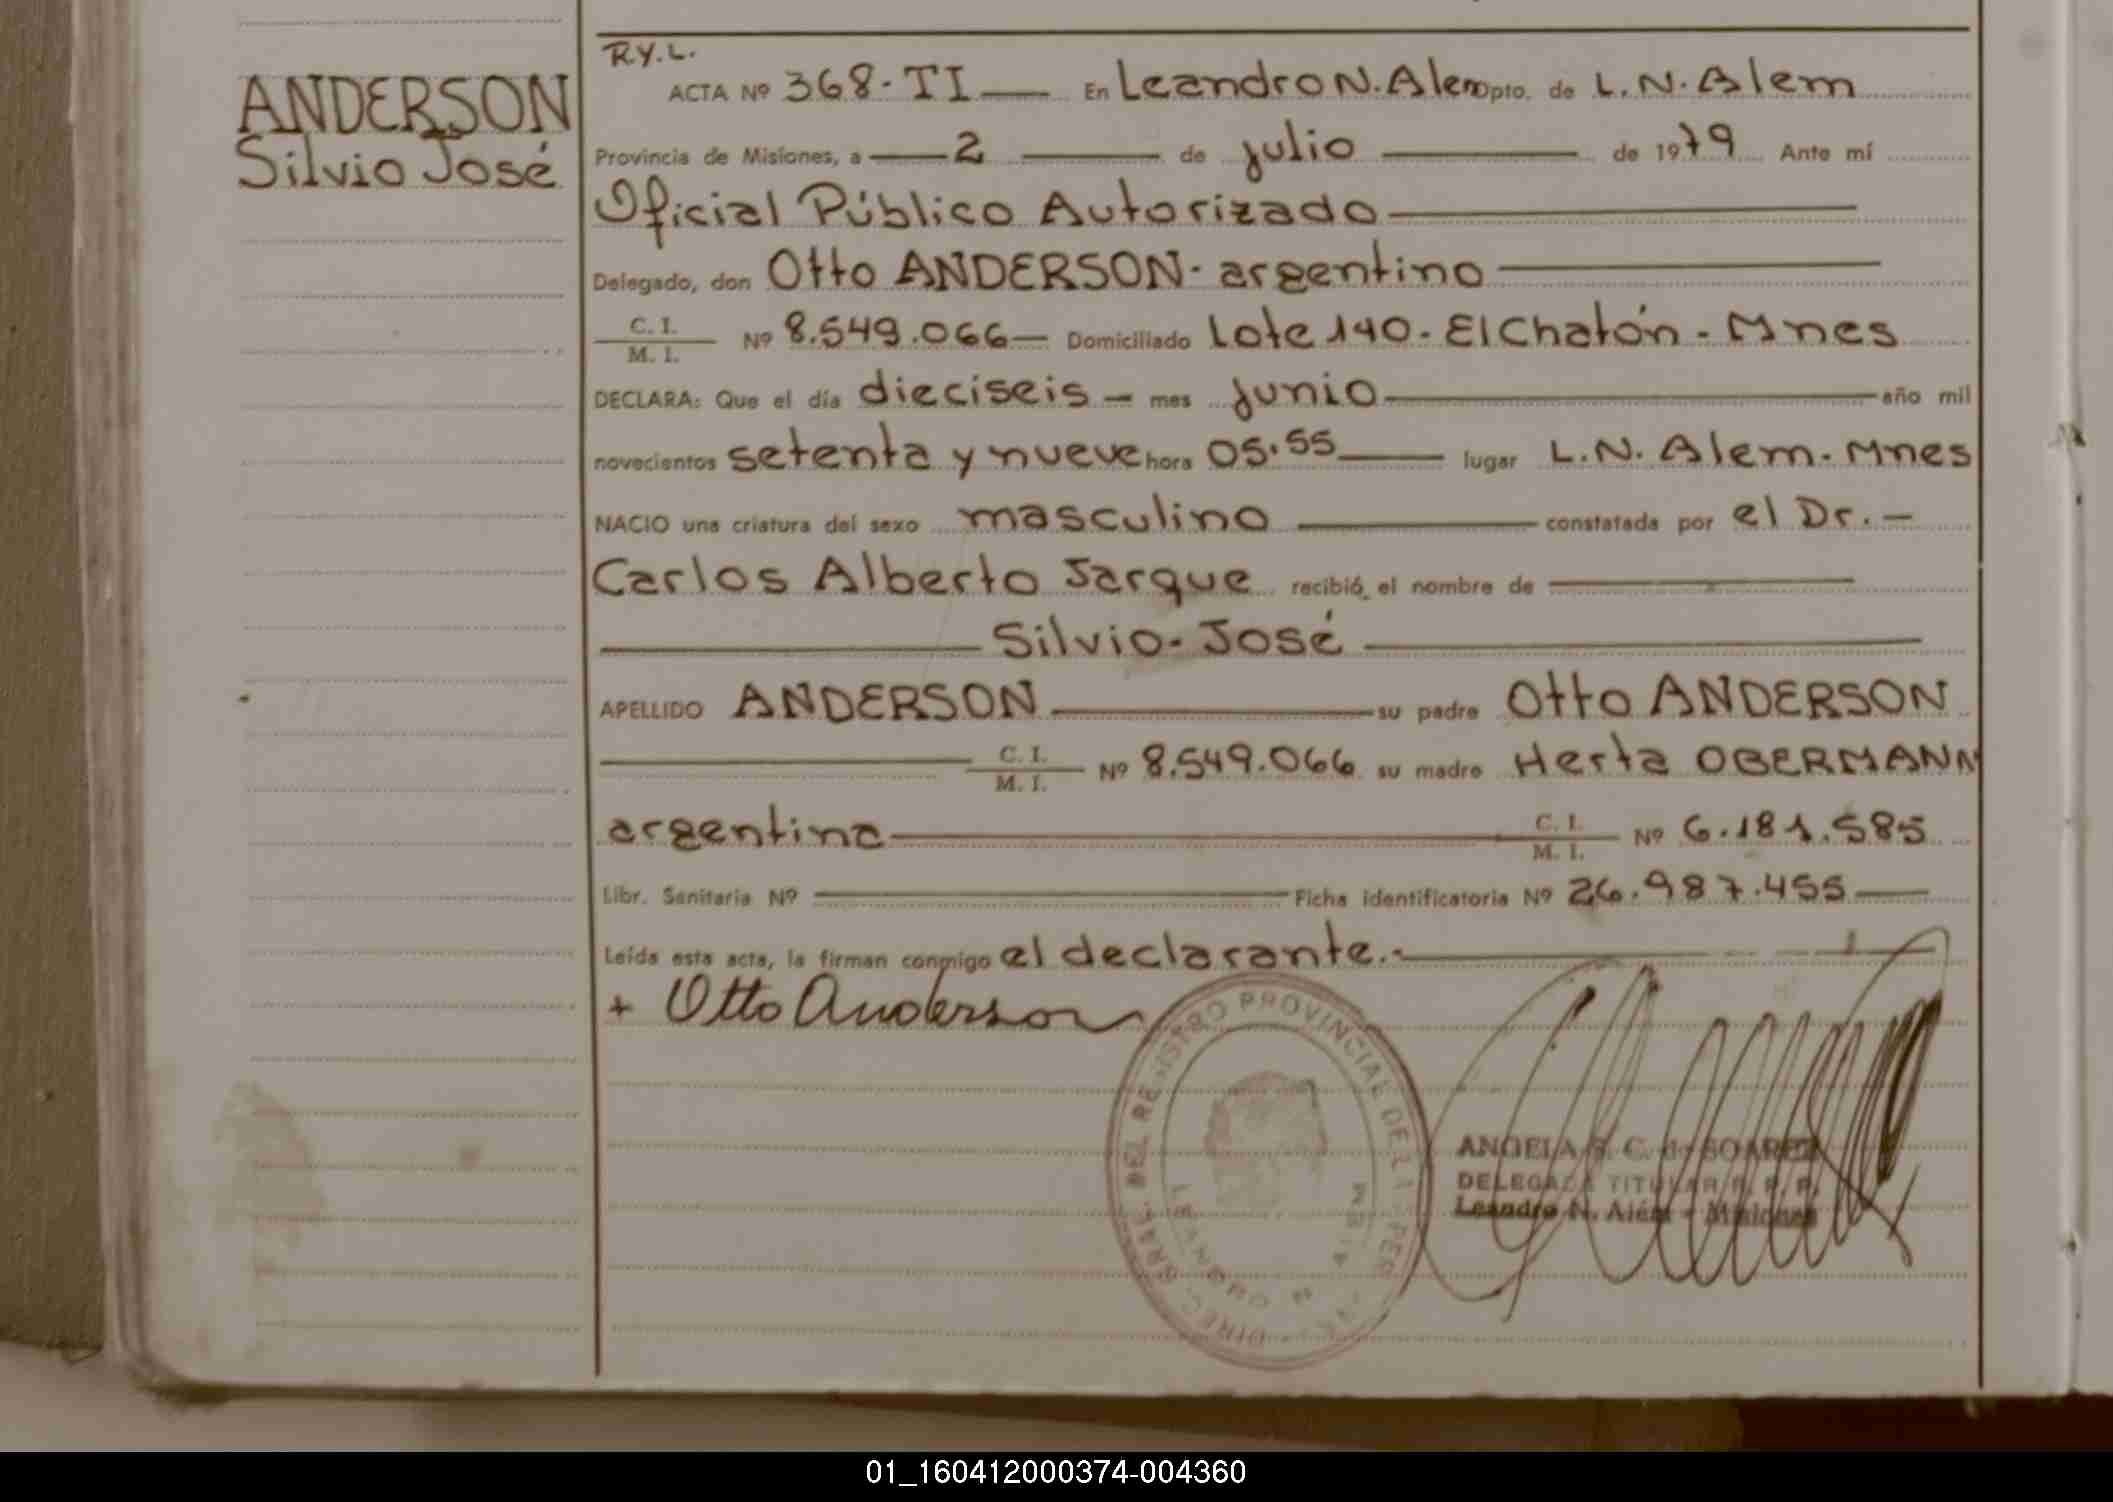 R.Y.L.
ANDERSON
Silvio José
ACTA Nº 368-TI En Leandro N. Alem Dpto. de L.N. Alem
Provincia de Misiones, a 2 de julio de 1979 Ante mí
Oficial Público Autorizado
Delegado, don Otto ANDERSON - argentino
C. I.
M. I. Nº 8.549.066 Domiciliado Lote 140 - El Chatón - Mnes
DECLARA: Que el día dieciseis mes junio año mil
novecientos setenta y nueve hora 05.55 lugar L.N. Alem. Mnes
NACIO una criatura del sexo masculino constatada por el Dr.
Carlos Alberto Jarque recibió el nombre de
Silvio - José
APELLIDO ANDERSON su padre Otto ANDERSON
C. I.
M. I. Nº 8.549.066 su madre Herta OBERMANN
argentina C. I.
M. I. Nº 6.181.585
Libr. Sanitaria Nº Ficha identificatoria Nº 26.987.455
Leída esta acta, la firman conmigo el declarante.-
+ Otto Anderson
DIREC. GRAL. DEL REGISTRO PROVINCIAL DE LA PER
LEANDRO N. ALEM
ANGELA S. C. de SOAREZ
DELEGADA TITULAR R. P. P.
Leandro N. Alem - Misiones
01_160412000374-004360